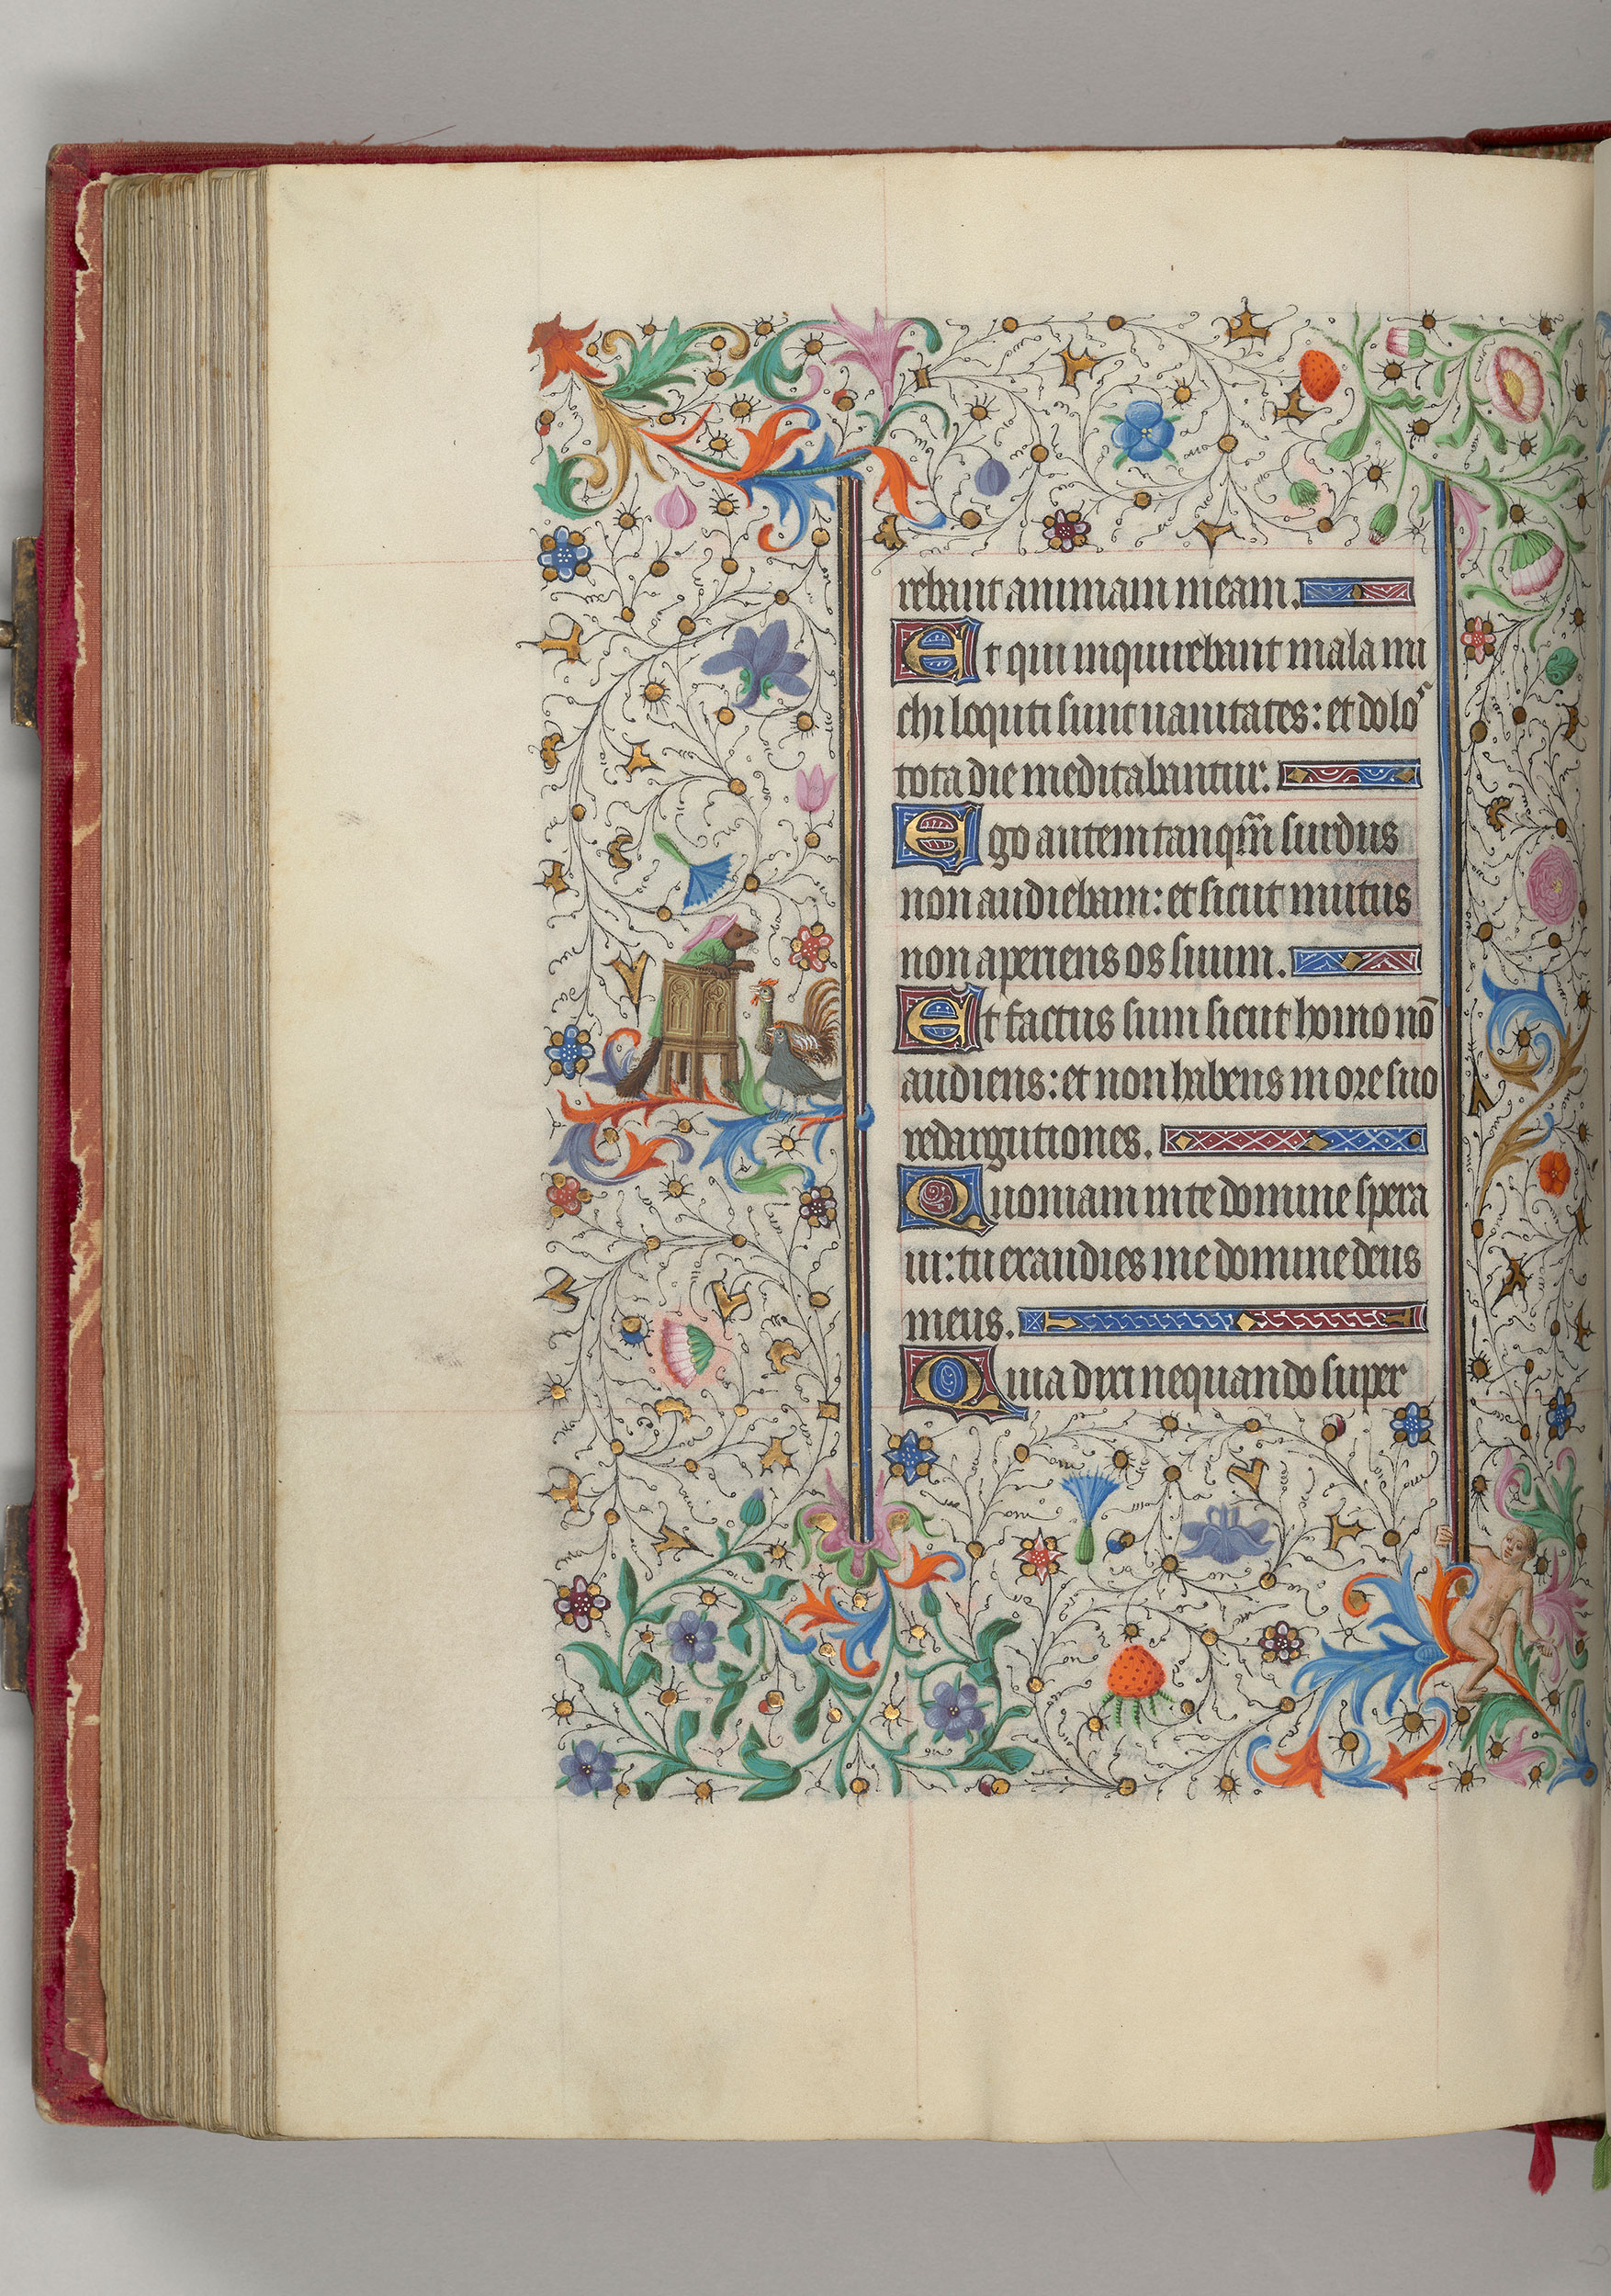 rebant animam meam.
Et qui inquirebant mala mi
chi locuti sunt vanitates: et dolos
tota die meditabantur.
Ego autem tanqm̄ surdus
non audiebam: et sicut mutus
non aperiens os suum.
Et factus sum sicut homo nō
audiens: et non habens in ore suo
redargutiones.
Quoniam in te domine spera
ui: tu exaudies me domine deus
meus.
Quia dixi nequando super